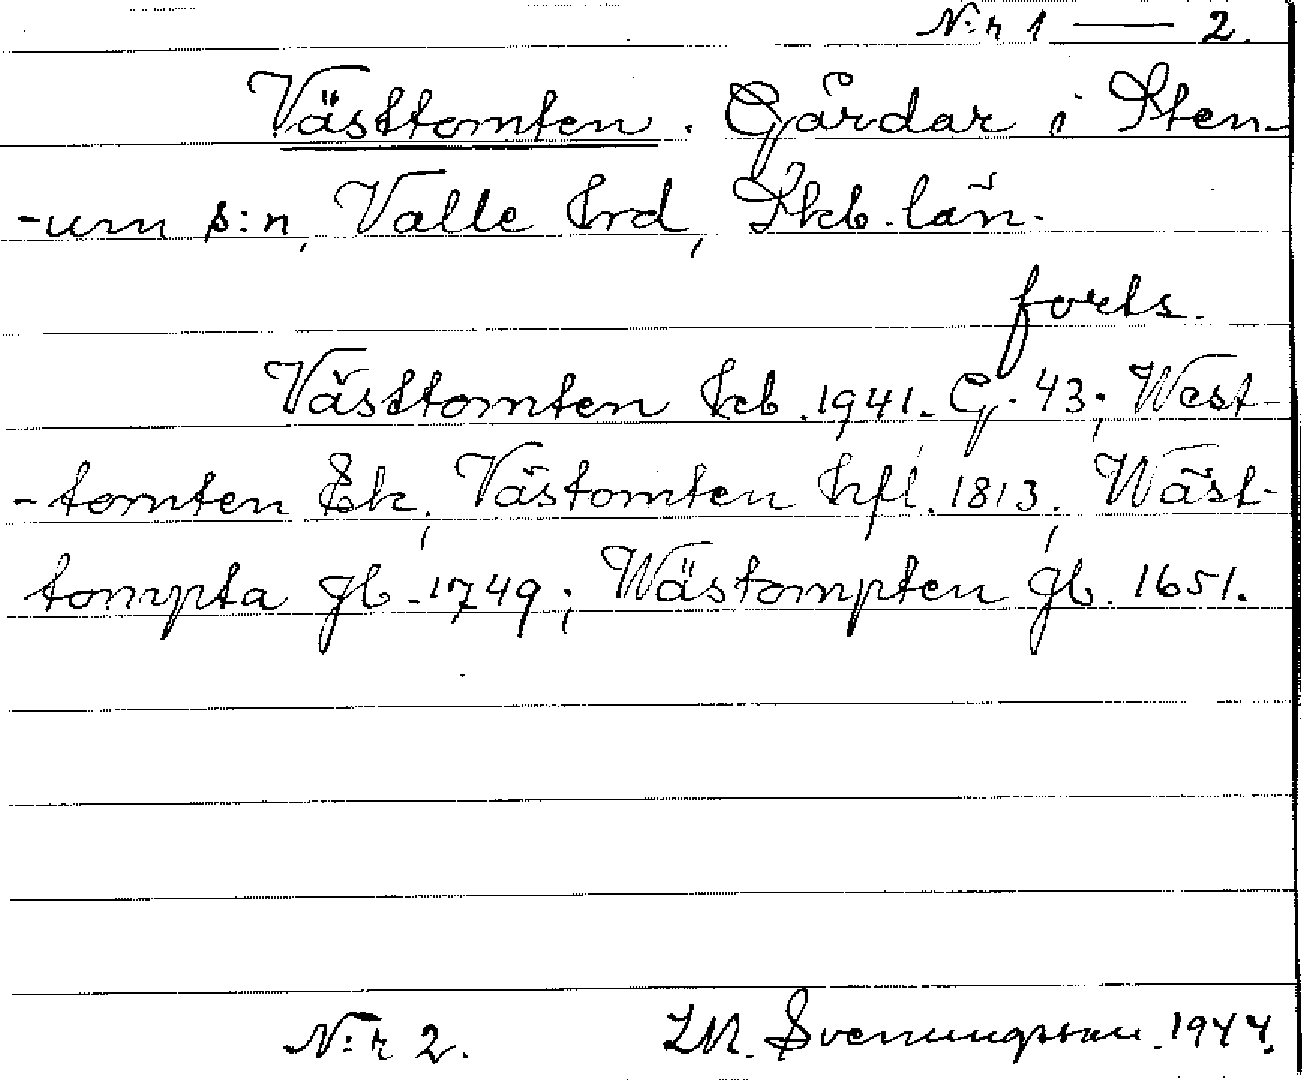 N:r 1 — 2.
Västtomten. Gårdar i Sten-
-um s:n, Valle hrd, Skb. län.
forts.
Västtomten Jeb. 1941. G. 43; West-
-tomten Ek; Västomten hfl. 1813; Wäst-
tompta gb. 1749; Wästompten gb. 1651.
N:r 2. Svenungsson. 1944.